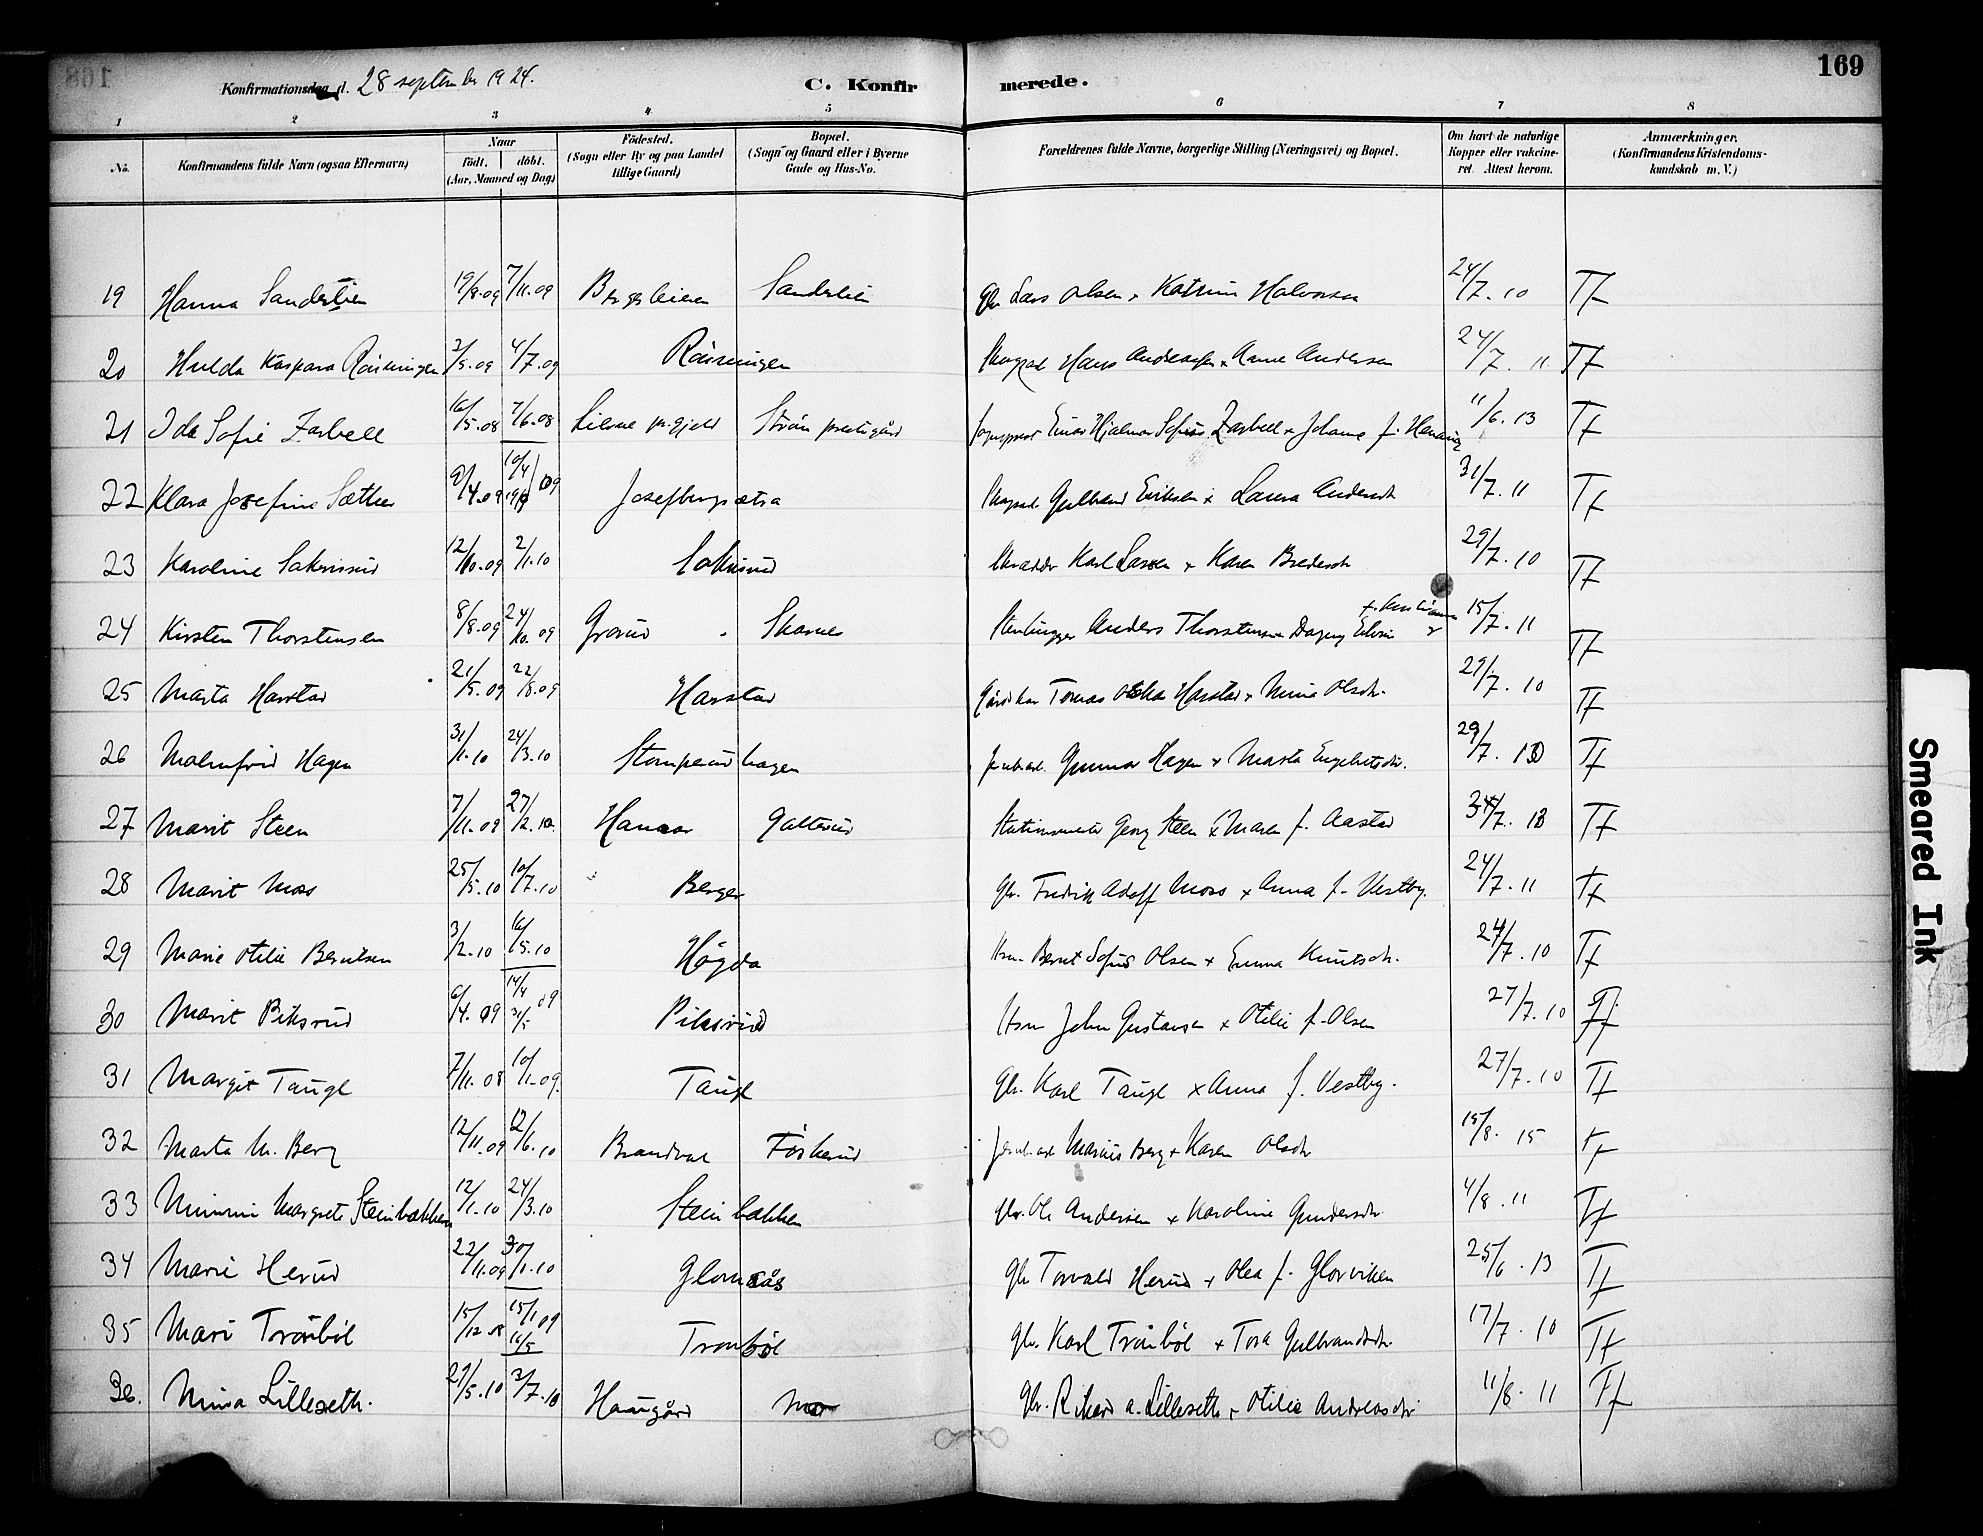 169
Konfirmationsdag d. 28 september 1924.
C. Konfirmerede.
1 2 3 4 5 6 7 8
No.
Konfirmandens fulde Navn (ogsaa Efternavn)
Naar
født. døbt.
(Aar, Maaned og Dag)
Födested.
(Sogn eller By og paa Landet
tillige Gaard)
Bopæl.
(Sogn og Gaard eller i Byerne
Gade og Hus-No.
Forældrenes fulde Navne, borgerlige Stilling (Næringsvei) og Bopæl.
Om havt de naturlige
Kopper eller vakcine-
ret. Attest herom.
Anmærkninger.
(Konfirmandens Kristendoms-
kundskab m. V.)
19 Hanna Sanderlien 19/8.09 7/11.09 Bergsleiren Sanderlien Gbr. Lars Olsen x Katrine Halvorsen 24/7.10 Tf
20 Hulda Kaspara 2/5.09 4/7.09 Hans Andreassen x Anne Andersen 24/7.11 Tf
21 Ida Sofie Zarbell 16/5.08 7/6.08 Lierne pr.gjeld Strøm prestegård Sogneprest Einar Hjalmar Sofus Zarbell x Johanne f. Henning 11/6.13 Tf
22 Klara Josefine Sæther 9/4.09 10/4 09 Josefbergsætra Gulbrand Eriksen x Laura Andersdr 31/7.11 Tf
23 Karoline Sakrissud 12/10.09 2/1.10 Skrædder Karl Larsen x Karen Bredesdr 29/7.10 Tf
24 Kirsten Thorstensen 8/8.09 24/10.09 Grorud Skarnes Stenhugger Anders Thorstensen x Dagny 15/7.11 Tf
25 Marta Harstad 21/5.09 22/8.09 Harstad Tomas Harstad x Mina Olsdr. 29/7.10 Tf
26 Malmfrid Hagen 31/1.10 24/3.10 Stomperudhagen Gunnar Hagen x Marta Engebretsdr. 29/7.10 Tf
27 Marit Steen 7/11.09 27/2.10 Hamar Galterud Georg Steen x Maren f. Aastad 13 Tf
28 Marit Moss 25/5.10 10/7.10 Berger Gbr. Fredrik Adolf Moss x Anna f. Vestby. 24/7.11 Tf
29 Marie Otilie Berntsen 3/2.10 16/5.10 Høgda Hsm. Bernt Sofus Olsen x Emma Knutsdr. 24/7.10 Tf
30 Marit Piksrud 6/4.09 14/4 31/5 09 Piksrud Hsm John Gustavsen x Otilie f. Olsen 27/7.10 Tf
31 Margit Taugl 7/11.08 10/1.09. Taugl Gbr. Karl Taugl x Anna f. Vestby. 27/7.10 Tf
32 Marta M. Berg 12/11.09 12/6.10 Brandval Føskerud Jernb.arb Marius Berg x Karen Olsdr 15/8.15 Tf
33 Mimmi Margrete Steinbakken 12/1.10 24/3.10 Steinbakken Gbr. Ole Andersen x Karoline Gundersdr 4/8.11 Tf
34 Marie Herud 22/11.09 30/1.10 Glomsås Gbr Torvald Herud x Olea f. Glorviken 25/6.13 Tf
35 Mari Trønbøl 15/12.08 15/1 09 16/5 Tronbøl Gbr. Karl Trønbøl x Tora Gulbrandsdr. 17/7.10 Tf
36. Mina Lilleseth. 27/5.10 3/7.10 Haugård Mo Gbr. Rikard A. Lilleseth x Otilie Andreasdr 11/8.11 Tf
Smeared Ink